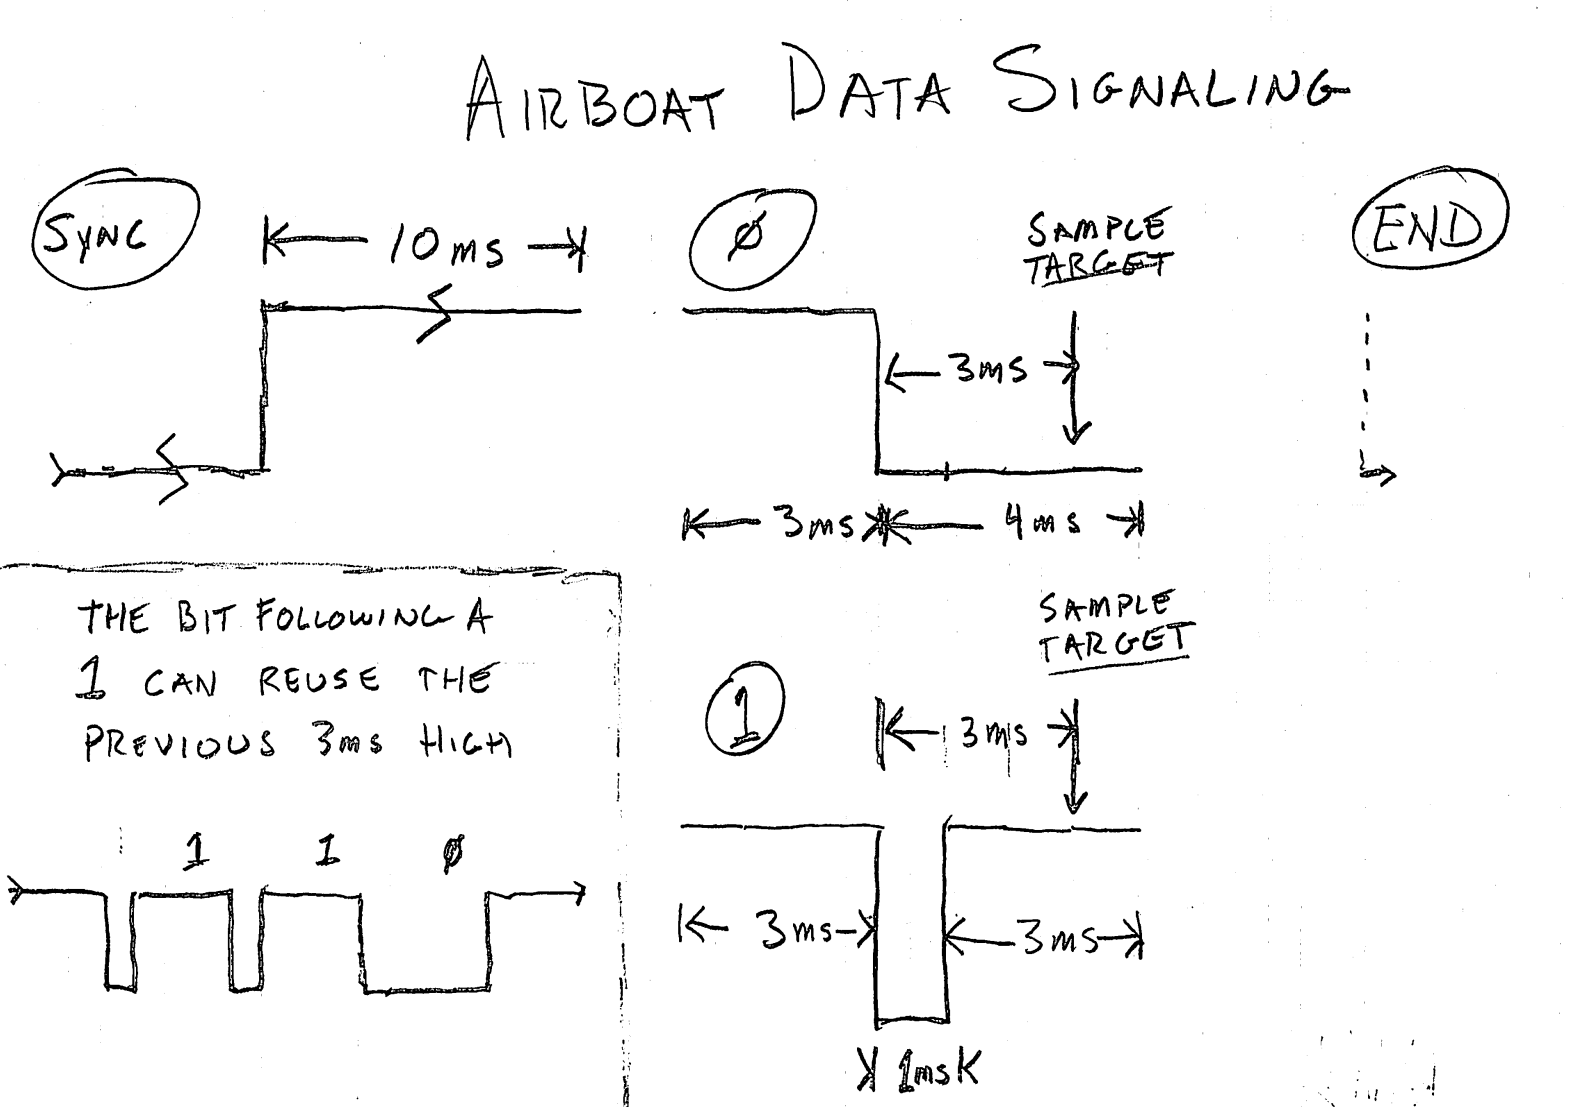 AIRBOAT DATA SIGNALING
SYNC
10ms
Ø
SAMPLE
TARGET
END
3ms
3ms
4ms
THE BIT FOLLOWING A
1 CAN REUSE THE
PREVIOUS 3ms HIGH
1 1 Ø
SAMPLE
TARGET
1
3ms
3ms
3ms
1ms